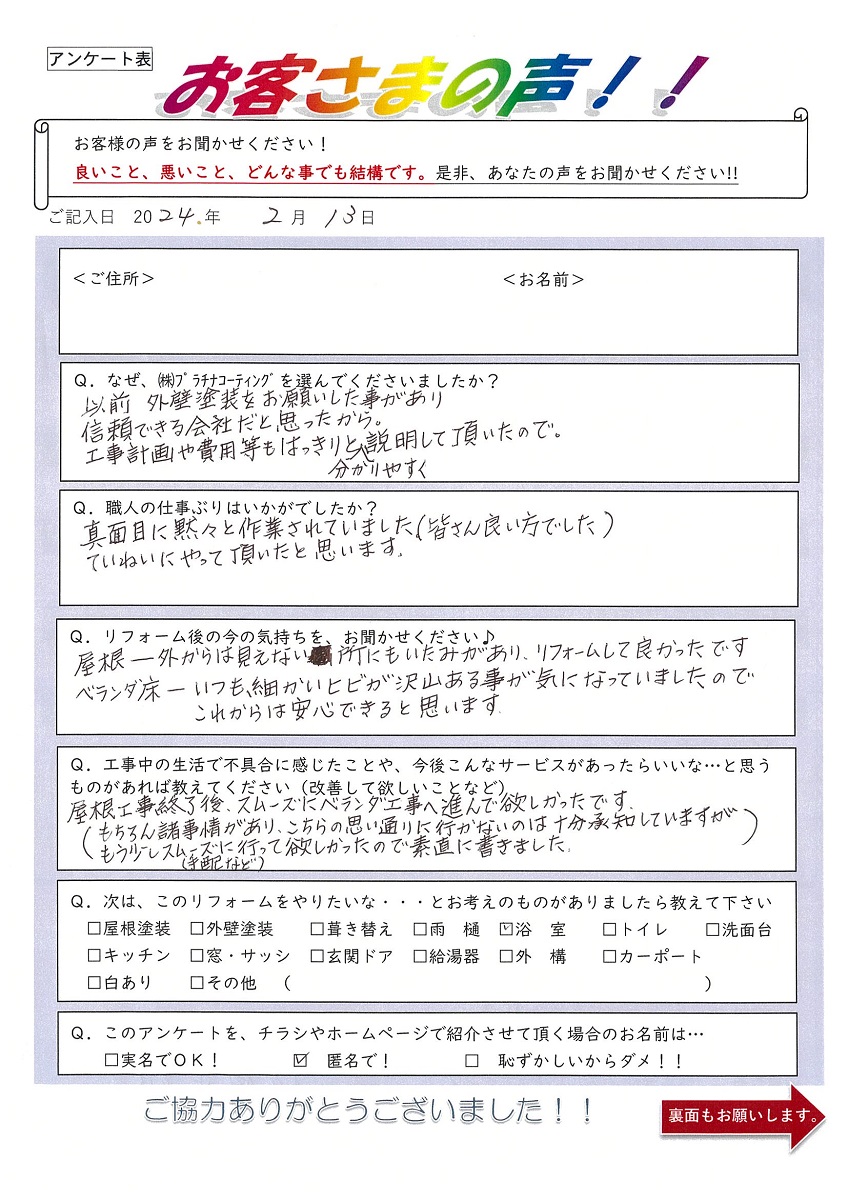 アンケート表
お客さまの声！！
お客様の声をお聞かせください！
良いこと、悪いこと、どんな事でも結構です。是非、あなたの声をお聞かせください!!
ご記入日 2024.年 2月 13日
＜ご住所＞ ＜お名前＞
Q．なぜ、㈱ﾌﾟﾗﾁﾅｺｰﾃｨﾝｸﾞを選んでくださいましたか？
以前 外壁塗装をお願いした事があり
信頼できる会社だと思ったから。
工事計画や費用等もはっきりと説明して頂いたので。
分かりやすく
Q．職人の仕事ぶりはいかがでしたか？
真面目に黙々と作業されていました。(皆さん良い方でした)
ていねいにやって頂いたと思います。
Q．リフォーム後の今の気持ちを、お聞かせください♪
屋根ー外からは見えない所にもいたみがあり、リフォームして良かったです
ベランダ床ーいつも、細かいヒビが沢山ある事が気になっていましたので
これからは安心できると思います。
Q．工事中の生活で不具合に感じたことや、今後こんなサービスがあったらいいな…と思う
ものがあれば教えてください（改善して欲しいことなど）
屋根工事終了後、スムーズにベランダ工事へ進んで欲しかったです。
(もちろん諸事情があり、こちらの思い通りに行かないのは十分承知していますが)
もう少しスムーズに行って欲しかったので素直に書きました。
(手配など)
Q．次は、このリフォームをやりたいな・・・とお考えのものがありましたら教えて下さい
□屋根塗装 □外壁塗装 □葺き替え □雨 樋 ☑浴 室 □トイレ □洗面台
□キッチン □窓・サッシ □玄関ドア □給湯器 □外 構 □カーポート
□白あり □その他 （ ）
Q．このアンケートを、チラシやホームページで紹介させて頂く場合のお名前は…
□実名でＯＫ！ ☑ 匿名で！ □ 恥ずかしいからダメ！！
ご協力ありがとうございました！！
裏面もお願いします。